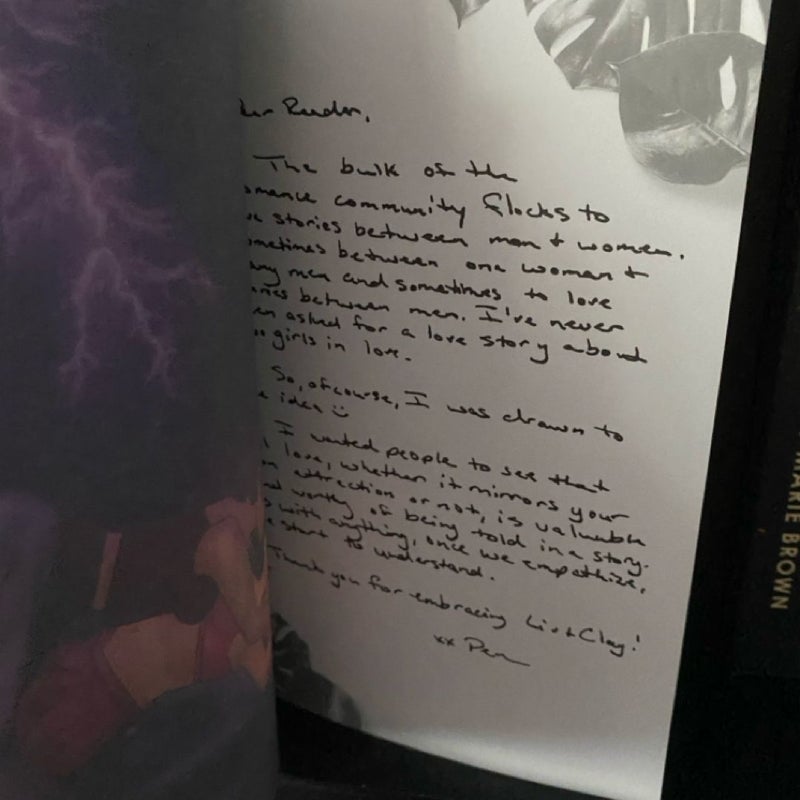 ear Reader,
The bulk of the
omance community flocks to
ve stories between men + women.
ometimes between one woman +
any men and sometimes to love
ories between men. I've never
en asked for a love story about
wo girls in love.
So, of course, I was drawn to
e idea ☺
I wanted people to see that
l love, whether it mirrors your
wn attraction or not, is valuable
nd worthy of being told in a story.
s with anything, once we empathize,
e start to understand.
Thank you for embracing Liv + Clay!
xx Pen
MARIE BROWN